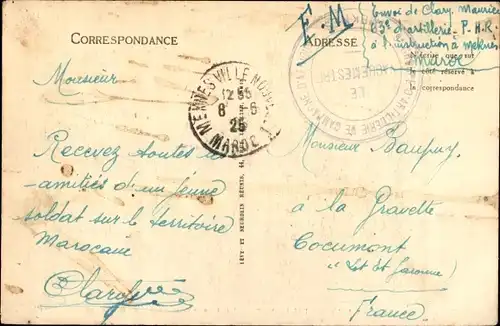 CORRESPONDANCE
Monsieur
Recevez toutes
amitiés d'un jeune
soldat sur le territoire
Marocain
Clary
MEKNES VILLE NOUVELLE
12 35
8 - 6
25
MAROC
LÉVY ET NEURDEIN RÉUNIS, 44,
F. M
ADRESSE
Envoi de Clary Maurice
83e d'artillerie - P. H. R.
à l'instruction à Meknès
Maroc
N'écrire que sur
le côté réservé à
la correspondance
LE
D'ARTILLERIE DE CAMPAGNE D'AF
Monsieur Baupuy
à la Gravette
Cocumont
(Lot et Garonne)
France